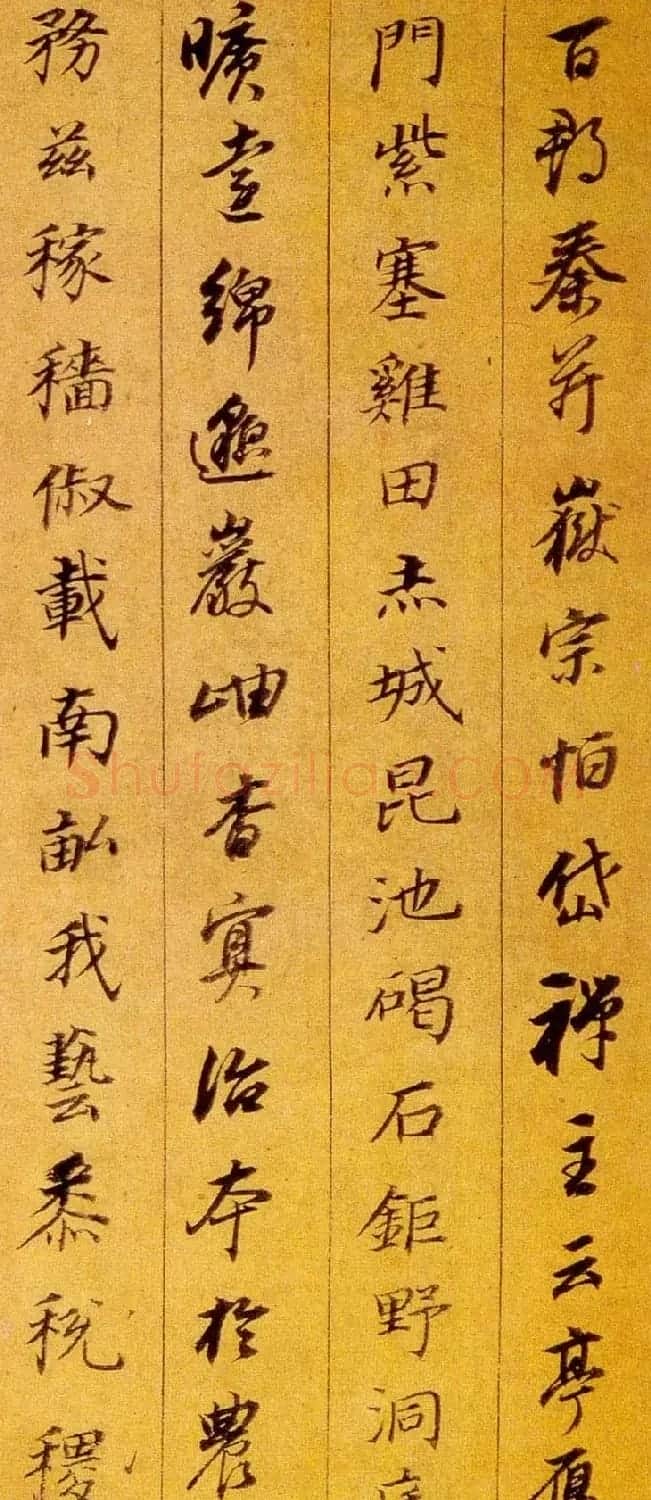 百郡秦并嶽宗怕岱禅主云亭
門紫塞雞田赤城昆池碣石鉅野洞
曠遠綿邈巖岫杳冥治本於農
務兹稼穡俶載南畝我藝黍稅稷